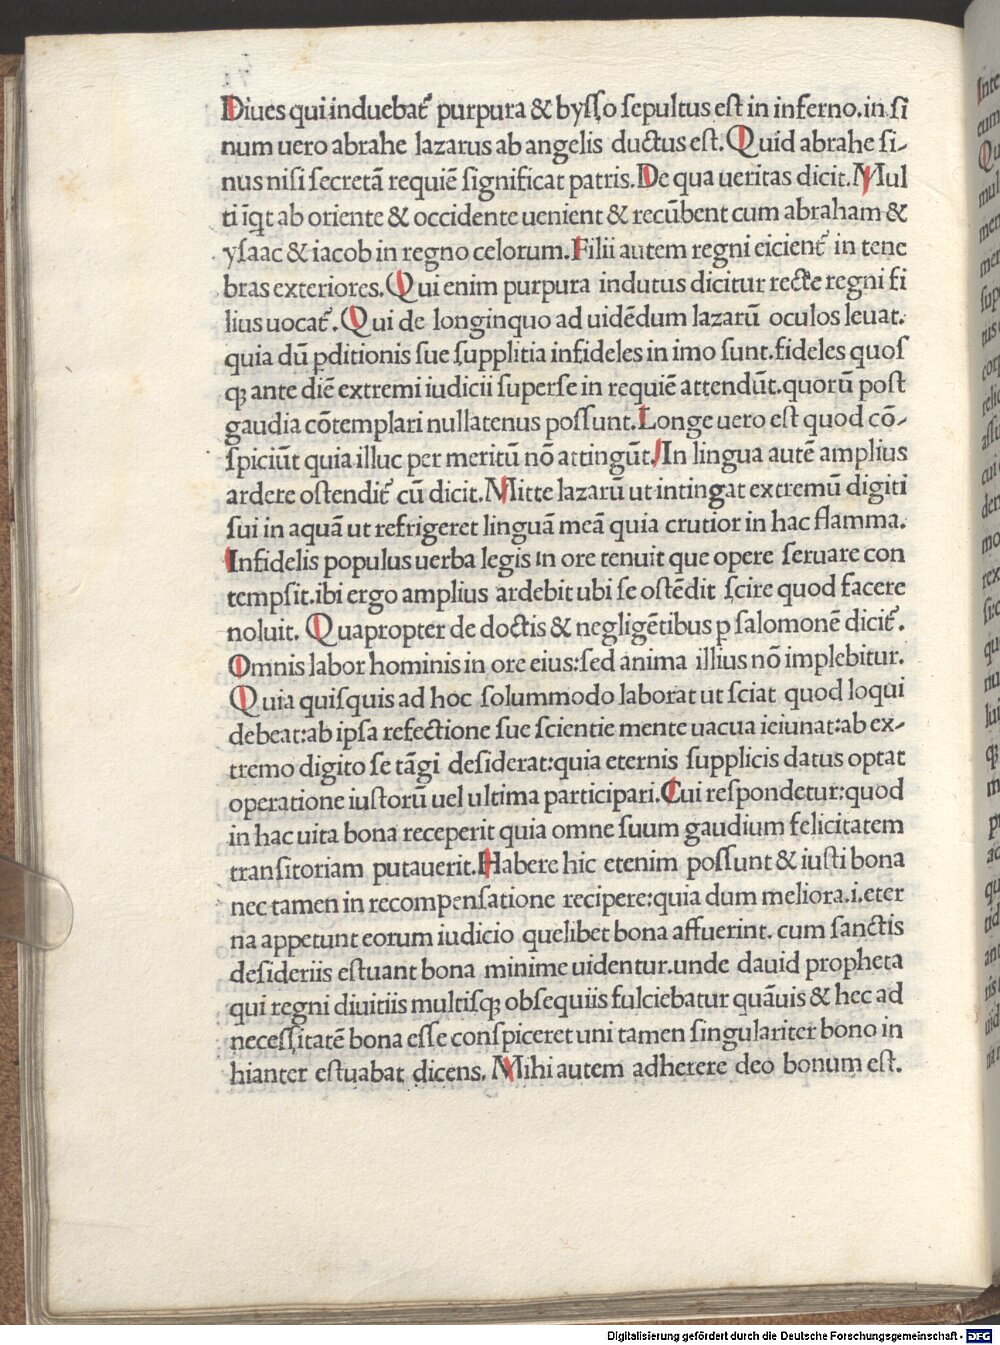 Diues qui induebat᷑ purpura & byſſo ſepultus eſt in inferno.in ſi
num uero abrahe lazarus ab angelis ductus eſt.Quid abrahe ſi-
nus niſi ſecretā requiē ſignificat patris.De qua ueritas dicit.Mul
ti īqt ab oriente & occidente uenient & recūbent cum abraham &
yſaac & iacob in regno celorum.Filii autem regni eicient᷑ in tene
bras exteriores.Qui enim purpura indutus dicitur recte regni fi
lius uocat᷑.Qui de longinquo ad uidēdum lazarū oculos leuat.
quia dū ꝑditionis ſue ſupplitia infideles in imo ſunt.fideles quoſ
qꝫ ante diē extremi iudicii ſuperſe in requiē attendūt.quorū poſt
gaudia cōtemplari nullatenus poſſunt.Longe uero eſt quod cō-
ſpiciūt quia illuc per meritū nō attingūt.In lingua autē amplius
ardere oſtendit᷑ cū dicit.Mitte lazarū ut intingat extremū digiti
ſui in aquā ut refrigeret linguā meā quia crutior in hac flamma.
Infidelis populus uerba legis in ore tenuit que opere ſeruare con
tempſit.ibi ergo amplius ardebit ubi ſe oſtēdit ſcire quod facere
noluit. Quapropter de doctis & negligētibus ꝑ ſalomonē dicit᷑.
Omnis labor hominis in ore eius:ſed anima illius nō implebitur.
Quia quiſquis ad hoc ſolummodo laborat ut ſciat quod loqui
debeat:ab ipſa refectione ſue ſcientie mente uacua ieiunat:ab ex-
tremo digito ſe tāgi deſiderat:quia eternis ſupplicis datus optat
operatione iuſtorū uel ultima participari.Cui reſpondetur:quod
in hac uita bona receperit quia omne ſuum gaudium felicitatem
tranſitoriam putauerit.Habere hic etenim poſſunt & iuſti bona
nec tamen in recompenſatione recipere:quia dum meliora.i.eter
na appetunt eorum iudicio quelibet bona affuerint. cum ſanctis
deſideriis eſtuant bona minime uidentur.unde dauid propheta
qui regni diuitiis multiſqꝫ obſequiis fulciebatur quāuis & hec ad
neceſſitatē bona eſſe conſpiceret uni tamen ſingulariter bono in
hianter eſtuabat dicens. Mihi autem adherere deo bonum eſt.
Digitalisierung gefördert durch die Deutsche Forschungsgemeinschaft - DFG